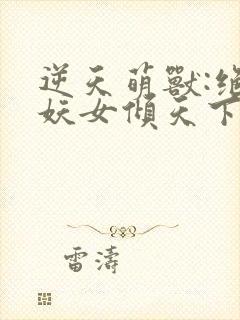 逆天萌獸:絕
妖女傾天下
雷濤